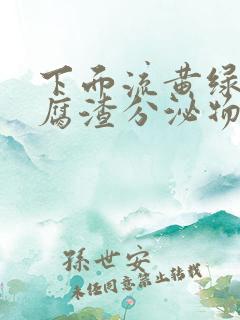 下面流黄绿
腐渣分泌物
孫世安
未经同意禁止转载